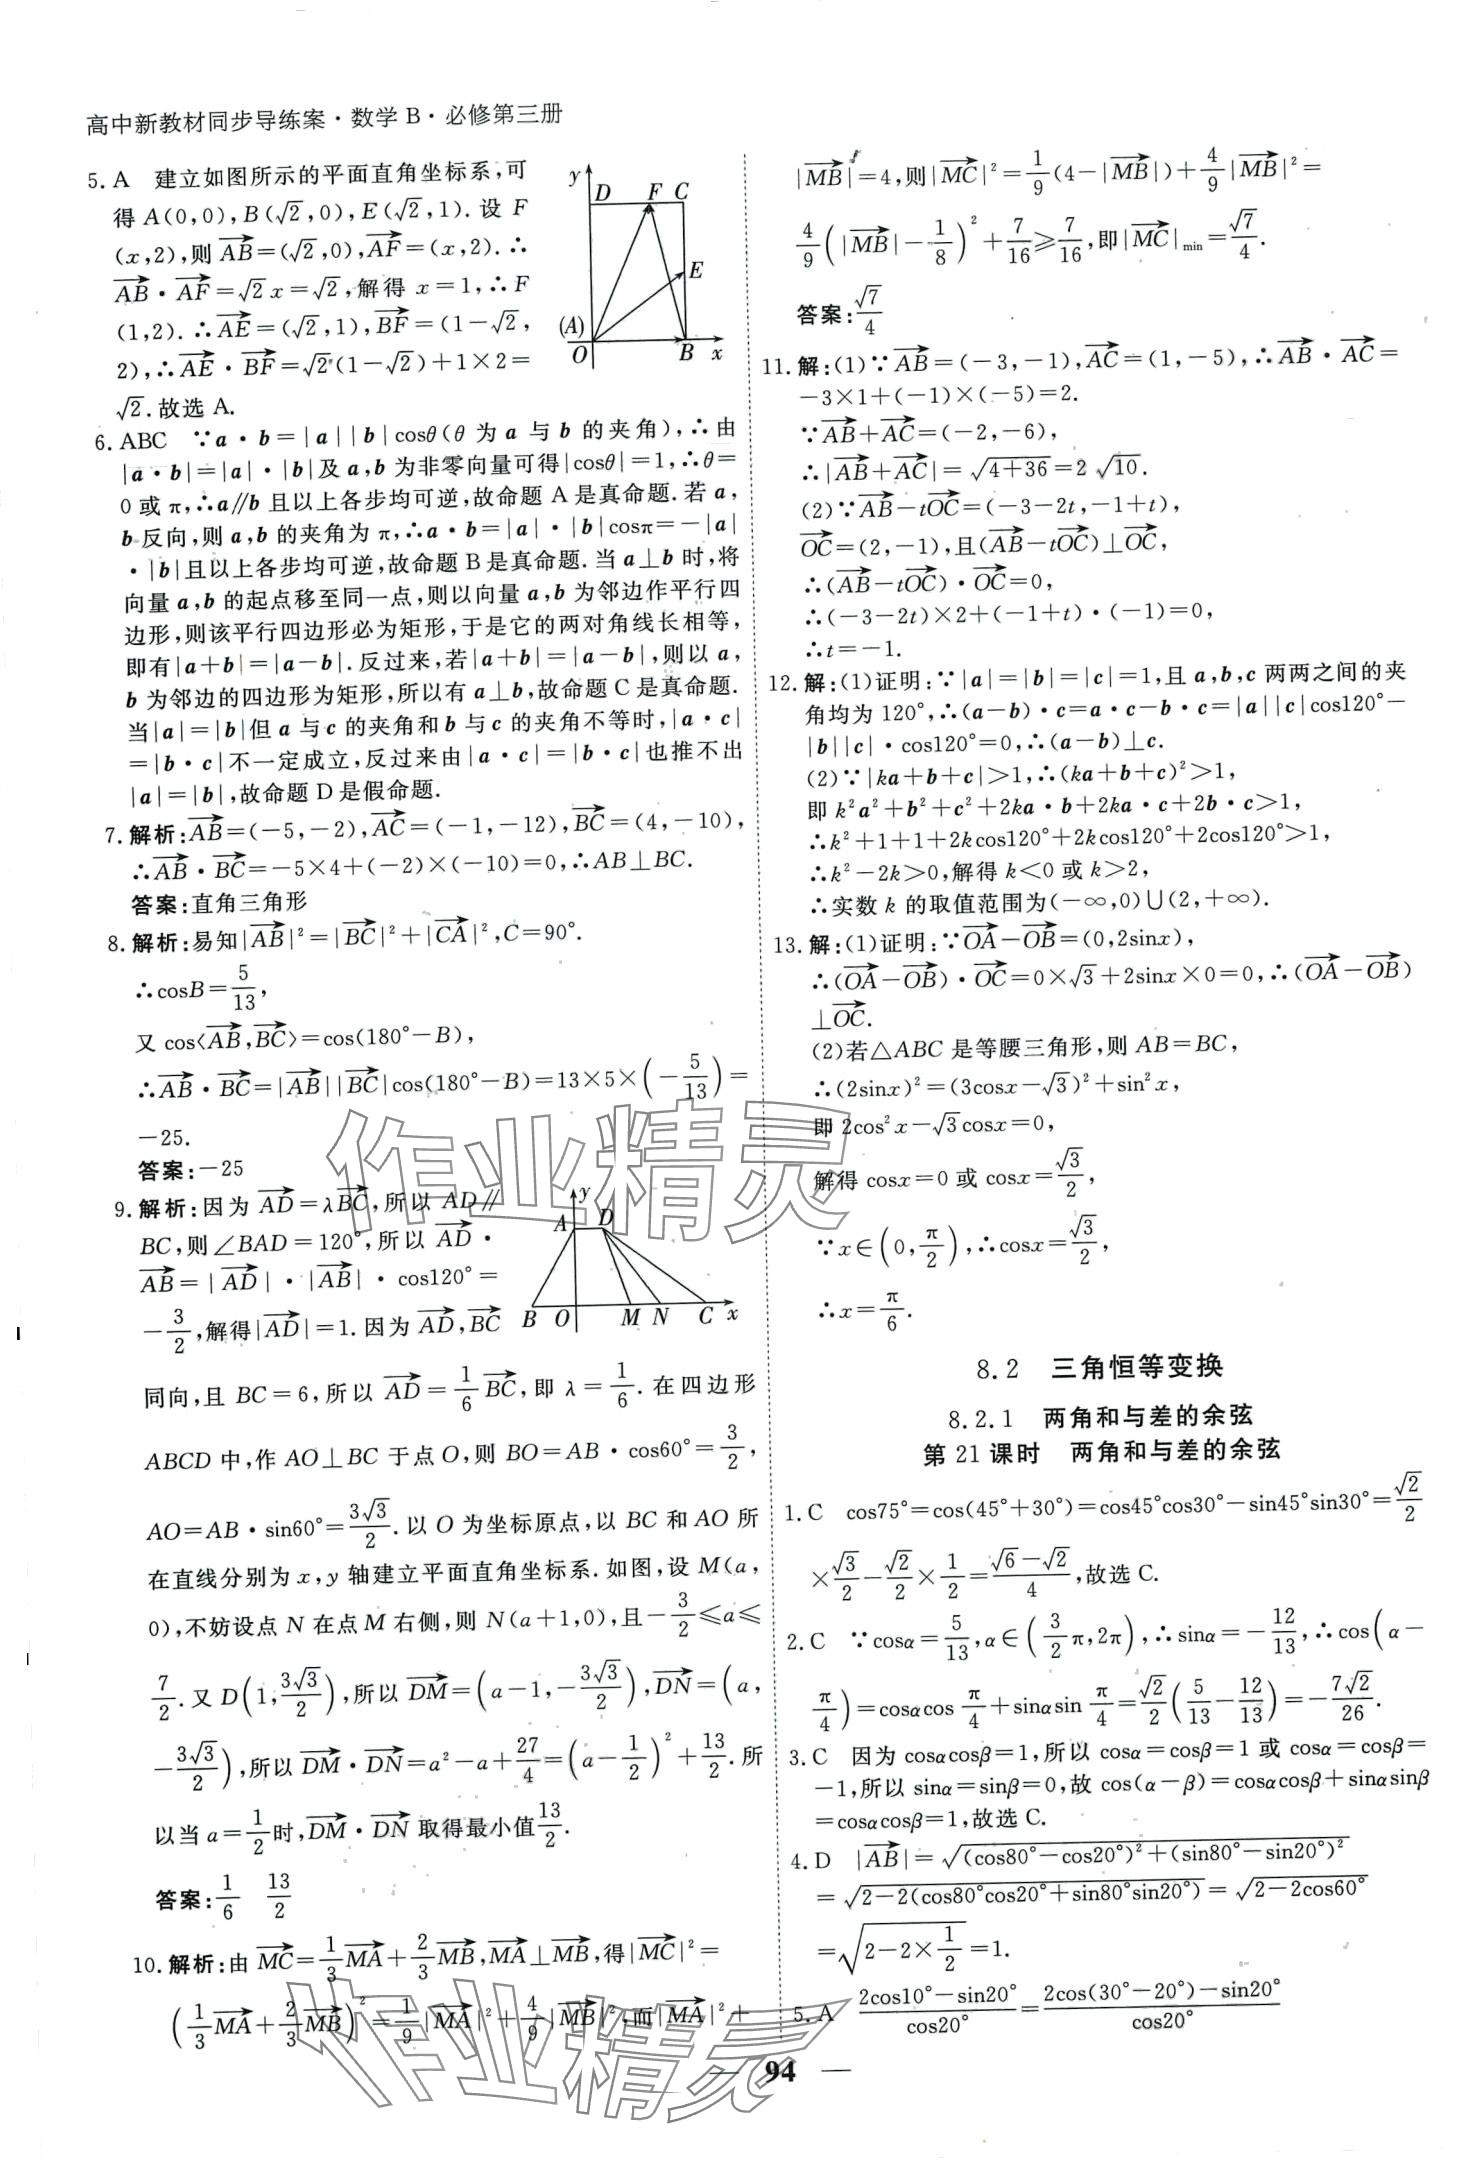 高中新教材同步导练案·数学 B·必修第三册
5. A 建立如图所示的平面直角坐标系,可
得 A(0,0),B(√2,0),E(√2,1). 设 F
(x,2),则 AB→=(√2,0),AF→=(x,2). ∴
AB→·AF→=√2x=√2,解得 x=1,∴F
(1,2). ∴AE→=(√2,1),BF→=(1-√2,
2),∴AE→·BF→=√2(1-√2)+1×2=
√2. 故选 A.
y D F C E (A) O B x
6. ABC ∵a·b=|a||b|cosθ(θ 为 a 与 b 的夹角),∴由
|a·b|=|a|·|b|及 a,b 为非零向量可得|cosθ|=1,∴θ=
0 或 π,∴a∥b 且以上各步均可逆,故命题 A 是真命题. 若 a,
b 反向,则 a,b 的夹角为 π,∴a·b=|a|·|b|cosπ=-|a|
·|b|且以上各步均可逆,故命题 B 是真命题. 当 a⊥b 时,将
向量 a,b 的起点移至同一点,则以向量 a,b 为邻边作平行四
边形,则该平行四边形必为矩形,于是它的两对角线长相等,
即有|a+b|=|a-b|. 反过来,若|a+b|=|a-b|,则以 a,
b 为邻边的四边形为矩形,所以有 a⊥b,故命题 C 是真命题.
当|a|=|b|但 a 与 c 的夹角和 b 与 c 的夹角不等时,|a·c|
=|b·c|不一定成立,反过来由|a·c|=|b·c|也推不出
|a|=|b|,故命题 D 是假命题.
7. 解析:AB→=(-5,-2),AC→=(-1,-12),BC→=(4,-10),
∴AB→·BC→=-5×4+(-2)×(-10)=0,∴AB⊥BC.
答案:直角三角形
8. 解析:易知|AB→|²=|BC→|²+|CA→|²,C=90°.
∴cosB=5/13,
又 cos⟨AB→,BC→⟩=cos(180°-B),
∴AB→·BC→=|AB→||BC→|cos(180°-B)=13×5×(-5/13)=
-25.
答案:-25
9. 解析:因为 AD→=λBC→,所以 AD∥
BC,则∠BAD=120°,所以 AD→·
AB→=|AD→|·|AB→|·cos120°=
-3/2,解得|AD→|=1. 因为 AD→,BC→
y A D B O M N C x
同向,且 BC=6,所以 AD→=1/6 BC→,即 λ=1/6. 在四边形
ABCD 中,作 AO⊥BC 于点 O,则 BO=AB·cos60°=3/2,
AO=AB·sin60°=3√3/2. 以 O 为坐标原点,以 BC 和 AO 所
在直线分别为 x,y 轴建立平面直角坐标系. 如图,设 M(a,
0),不妨设点 N 在点 M 右侧,则 N(a+1,0),且-3/2≤a≤
7/2. 又 D(1,3√3/2),所以 DM→=(a-1,-3√3/2),DN→=(a,
-3√3/2),所以 DM→·DN→=a²-a+27/4=(a-1/2)²+13/2. 所
以当 a=1/2时,DM→·DN→ 取得最小值13/2.
答案:1/6 13/2
10. 解析:由 MC→=1/3 MA→+2/3 MB→,MA→⊥MB→,得|MC→|²=
(1/3 MA→+2/3 MB→)²=1/9|MA→|²+4/9|MB→|²,而|MA→|²+
|MB→|=4,则|MC→|²=1/9(4-|MB→|)+4/9|MB→|²=
4/9(|MB→|-1/8)²+7/16≥7/16,即|MC→|min=√7/4.
答案:√7/4
11. 解:(1)∵AB→=(-3,-1),AC→=(1,-5),∴AB→·AC→=
-3×1+(-1)×(-5)=2.
∵AB→+AC→=(-2,-6),
∴|AB→+AC→|=√(4+36)=2√10.
(2)∵AB→-tOC→=(-3-2t,-1+t),
OC→=(2,-1),且(AB→-tOC→)⊥OC→,
∴(AB→-tOC→)·OC→=0,
∴(-3-2t)×2+(-1+t)·(-1)=0,
∴t=-1.
12. 解:(1)证明:∵|a|=|b|=|c|=1,且 a,b,c 两两之间的夹
角均为 120°,∴(a-b)·c=a·c-b·c=|a||c|cos120°-
|b||c|·cos120°=0,∴(a-b)⊥c.
(2)∵|ka+b+c|>1,∴(ka+b+c)²>1,
即 k²a²+b²+c²+2ka·b+2ka·c+2b·c>1,
∴k²+1+1+2kcos120°+2kcos120°+2cos120°>1,
∴k²-2k>0,解得 k<0 或 k>2,
∴实数 k 的取值范围为(-∞,0)∪(2,+∞).
13. 解:(1)证明:∵OA→-OB→=(0,2sinx),
∴(OA→-OB→)·OC→=0×√3+2sinx×0=0,∴(OA→-OB→)
⊥OC→.
(2)若△ABC 是等腰三角形,则 AB=BC,
∴(2sinx)²=(3cosx-√3)²+sin²x,
即 2cos²x-√3cosx=0,
解得 cosx=0 或 cosx=√3/2,
∵x∈(0,π/2),∴cosx=√3/2,
∴x=π/6.
8.2 三角恒等变换
8.2.1 两角和与差的余弦
第 21 课时 两角和与差的余弦
1. C cos75°=cos(45°+30°)=cos45°cos30°-sin45°sin30°=√2/2
×√3/2-√2/2×1/2=(√6-√2)/4,故选 C.
2. C ∵cosα=5/13,α∈(3/2π,2π),∴sinα=-12/13,∴cos(α-
π/4)=cosαcosπ/4+sinαsinπ/4=√2/2(5/13-12/13)=-7√2/26.
3. C 因为 cosαcosβ=1,所以 cosα=cosβ=1 或 cosα=cosβ=
-1,所以 sinα=sinβ=0,故 cos(α-β)=cosαcosβ+sinαsinβ
=cosαcosβ=1,故选 C.
4. D |AB→|=√((cos80°-cos20°)²+(sin80°-sin20°)²)
=√(2-2(cos80°cos20°+sin80°sin20°))=√(2-2cos60°)
=√(2-2×1/2)=1.
5. A (2cos10°-sin20°)/cos20°=(2cos(30°-20°)-sin20°)/cos20°
— 94 —
作业精灵
作业精灵